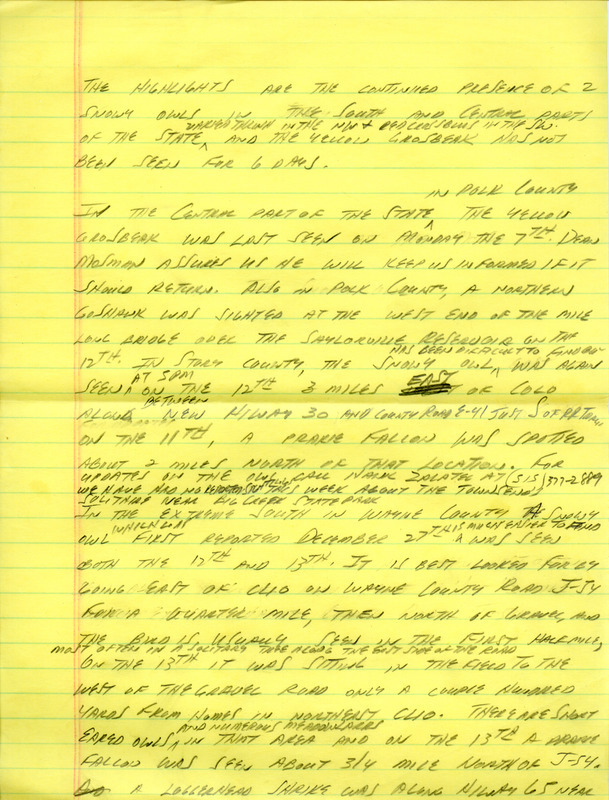 THE HIGHLIGHTS ARE THE CONTINUED PRESENCE OF 2
SNOWY OWLS IN THE SOUTH AND CENTRAL PARTS
VARIED THRUSH IN THE NW + RED CROSSBILLS IN THE SW.
OF THE STATE, AND THE YELLOW GROSBEAK HAS NOT
BEEN SEEN FOR 6 DAYS.
IN POLK COUNTY
IN THE CENTRAL PART OF THE STATE, THE YELLOW
GROSBEAK WAS LAST SEEN ON MONDAY THE 7TH. DEAN
MOSMAN ASSURES US HE WILL KEEP US INFORMED IF IT
SHOULD RETURN. ALSO IN POLK COUNTY, A NORTHERN
GOSHAWK WAS SIGHTED AT THE WEST END OF THE MILE
LONG BRIDGE OVER THE SAYLORVILLE RESERVOIR ON THE
HAS BEEN DIFFICULT TO FIND BUT
12TH. IN STORY COUNTY, THE SNOWY OWL WAS AGAIN
AT 5PM
SEEN ON THE 12TH 3 MILES EAST OF COLO
BETWEEN
ALONG NEW HIWAY 30 AND COUNTY ROAD E-41 JUST S OF RR
ON THE 11TH, A PRAIRIE FALLON WAS SPOTTED
ABOUT 2 MILES NORTH OF THAT LOCATION. FOR
UPDATES ON THE OWL CALL HANK ZALETEL AT (515) 377-2889
WE HAVE HAD NO THIS WEEK ABOUT THE TOWNSENDS
SOLITAIRE NEAR CREEK STATE PARK
IN THE EXTREME SOUTH IN WAYNE COUNTY A SNOWY
WHICH WAS IS MUCH EASIER TO FIND
OWL FIRST REPORTED DECEMBER 27TH WAS SEEN
BOTH THE 12TH AND 13TH. IT IS BEST LOOKED FOR BY
GOING EAST OF CLIO ON WAYNE COUNTY ROAD J-54
FOR A QUARTER MILE, THEN NORTH OF GRAVEL AND
THE BIRD IS USUALLY SEEN IN THE FIRST HALF MILE,
MOST OFTEN IN A SOLITARY TREE ALONG THE EAST SIDE OF THE ROAD
ON THE 13TH IT WAS SITTING IN THE FIELD TO THE
WEST OF THE GRAVEL ROAD ONLY A COUPLE HUNDRED
YARDS FROM HOMES IN NORTHEAST CLIO. THERE ARE SHORT
AND NUMEROUS MEADOWLARKS
EARED OWLS IN THAT AREA AND ON THE 13TH A PRAIRIE
FALLON WAS SEEN ABOUT 3/4 MILE NORTH OF J-54.
A LOGGERHEAD SHRIKE WAS ALONG HIWAY 65 NEAR